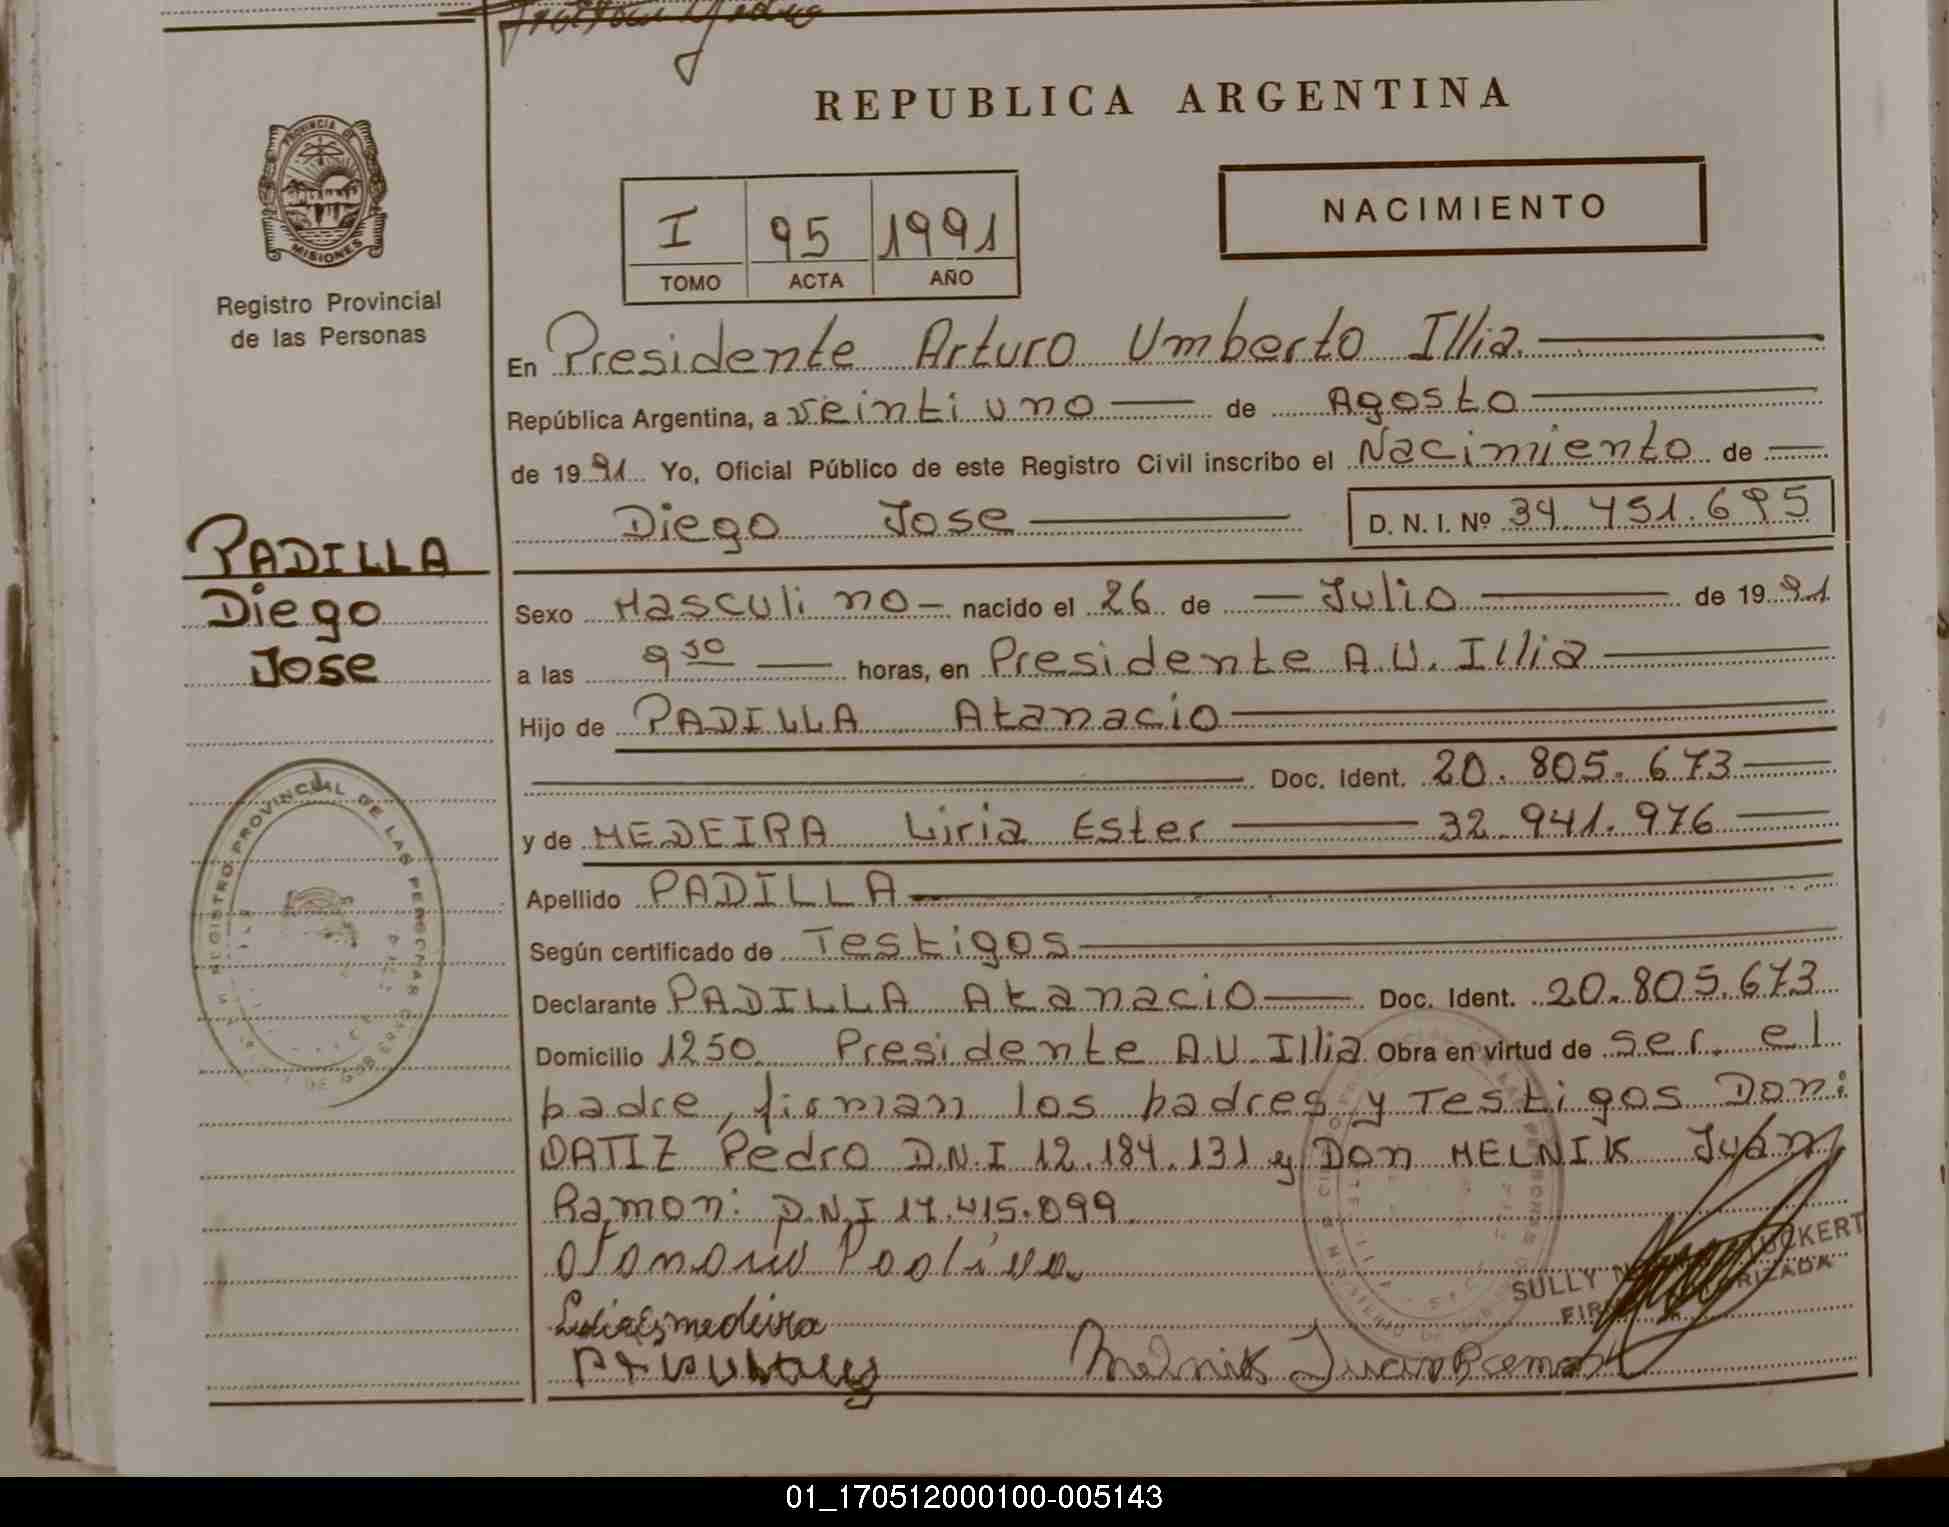 REPUBLICA ARGENTINA
PROVINCIA DE
MISIONES
Registro Provincial
de las Personas
I 95 1991
TOMO ACTA AÑO
NACIMIENTO
En Presidente Arturo Umberto Illia
República Argentina, a veinti uno de Agosto
de 1991 Yo, Oficial Público de este Registro Civil inscribo el Nacimiento de
Diego Jose D. N. I. Nº 34.451.695
PADILLA
Diego
Jose
Sexo Masculino nacido el 26 de Julio de 1991
a las 9 30 horas, en Presidente A.U. Illia
Hijo de PADILLA Atanacio
Doc. Ident. 20.805.673
y de MEDEIRA Liria Ester 32.941.976
Apellido PADILLA
Según certificado de Testigos
Declarante PADILLA Atanacio Doc. Ident. 20.805.673
Domicilio 1250 Presidente A.U Illia Obra en virtud de ser el
padre, firman los padres y Testigos Don:
ORTIZ Pedro D.N.I 12.184.131 y Don MELNIK Juan
Ramon: D.N.I 17.415.099
REGISTRO PROVINCIAL DE LAS PERSONAS
SULLY
Melnik Juan Ramon
01_170512000100-005143